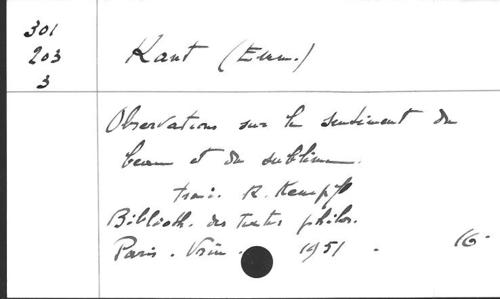 301
203
3
Kant (Emm.)
Observations sur le sentiment du
beau et du sublime.
trad. R. Kempf
Biblioth. des textes philos.
Paris. Vrin. 1951. 16-